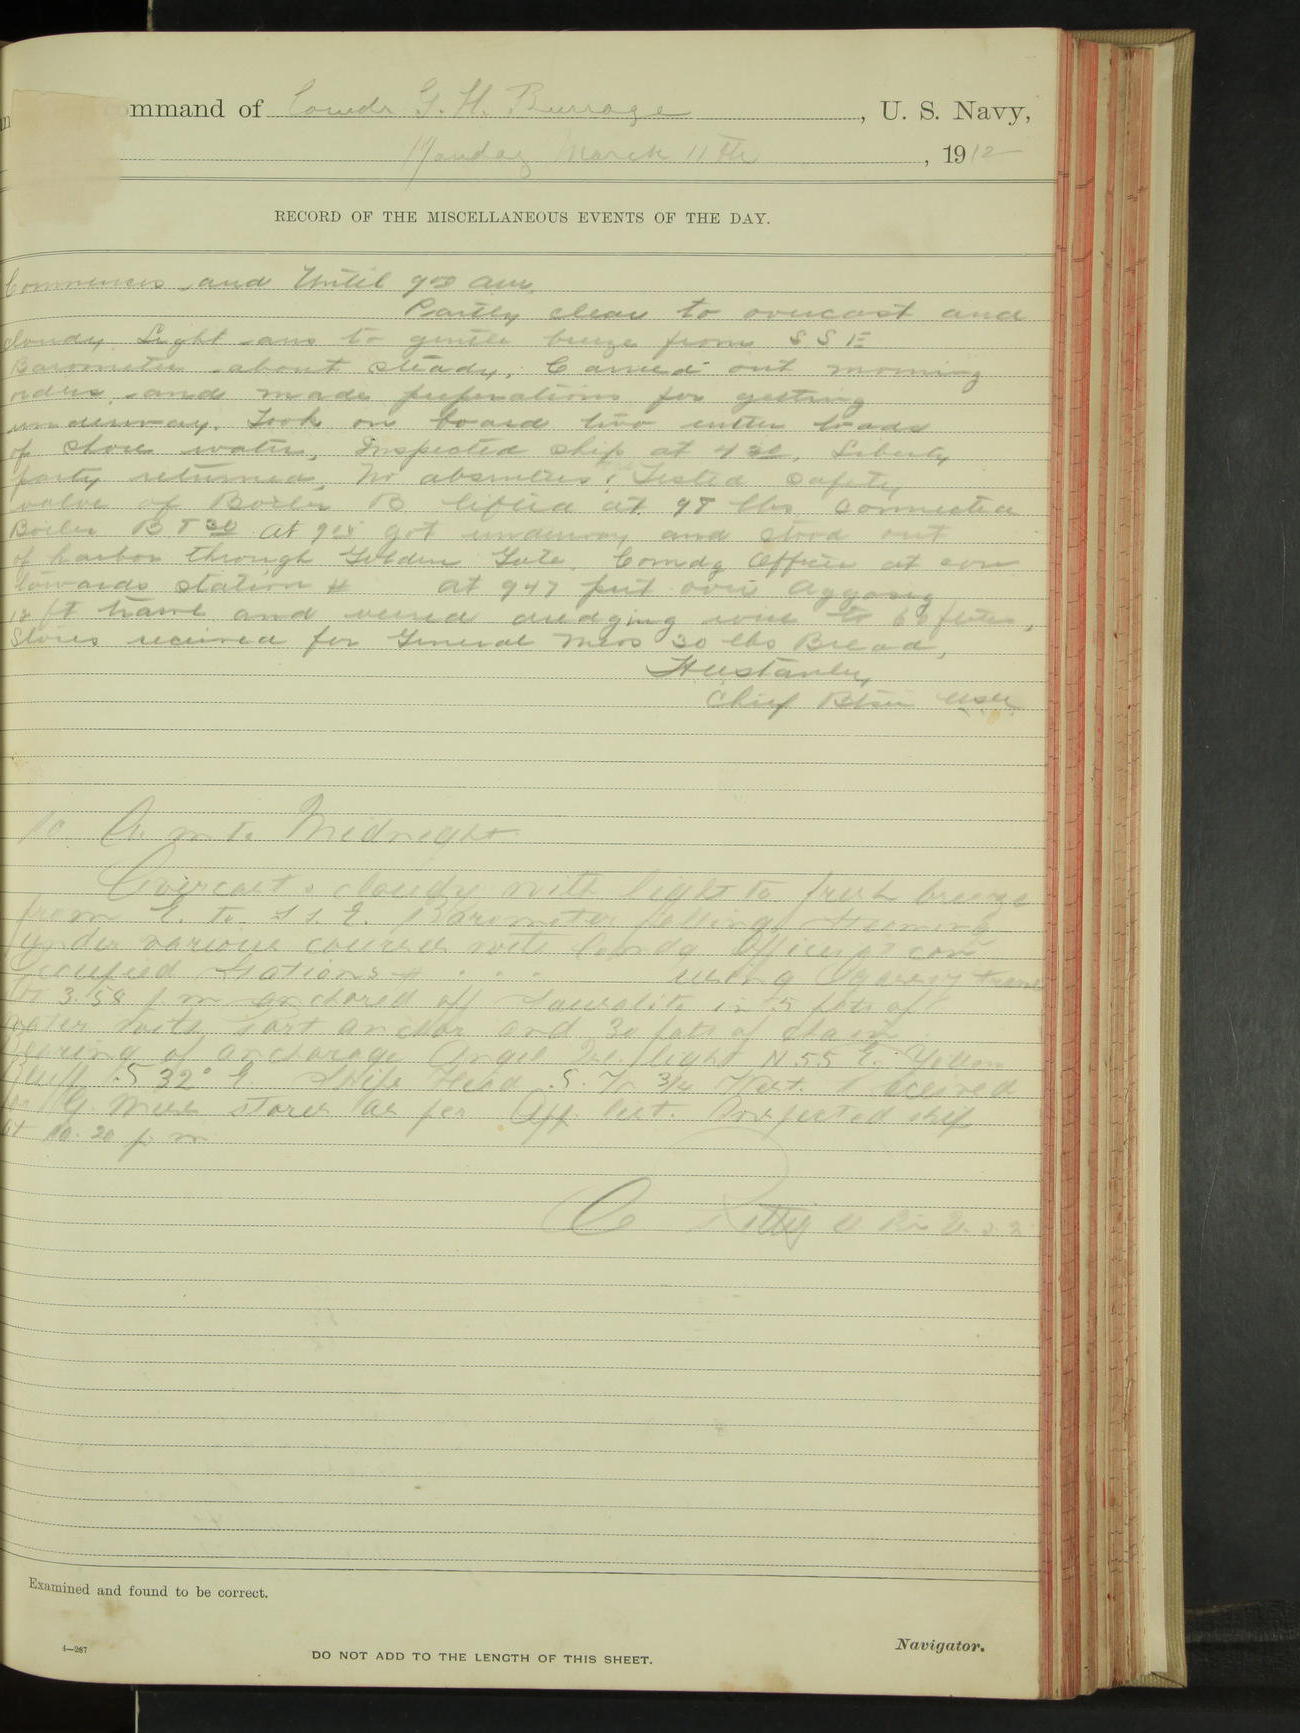 command of Comdr G. H. Burrage, U. S. Navy,
Monday March 11th, 1912
RECORD OF THE MISCELLANEOUS EVENTS OF THE DAY.
Commences and Until 9 00 am.
Partly clear to overcast and
cloudy, Light airs to gentle breeze from S S E
Barometer about steady, Carried out morning
orders and made preperations for getting
underway. Took on board two cutter loads
of shore water, Inspected ship at 4 30, Liberty
party returned, No absentees, Tested safety
valve of Boiler B lifted at 98 lbs connected
Boiler B 7 30 at 9 05 got underway and stood out
of harbor through Golden Gate. Comdg Officer at con
towards station # at 9 47 put over Aggasiz
12 ft trawl and veered dredging wire to 60 fms,
Stores received for General Mess 30 lbs Bread,
H Stanley
Chief Btsn USN
A. m to Midnight
Overcast & cloudy with light to fresh breeze
from E. to S S E. Barometer falling, Steaming
under various courses with Comdg Officer at con
Occupied Stations # . . . using Agassiz trawl
At 3.58 p m anchored off Sausalito in 5 fats of
water with Port anchor and 30 fats of chain
Bearing of anchorage Angel Isl. light N 55 E, Yellow
Bluff S 32° E. Strife Head S. W 3/4 West. Received
for G. Mess stores as per App list. Inspected ship
at 10.20 p m
C Pettig
Examined and found to be correct.
Navigator.
4—267
DO NOT ADD TO THE LENGTH OF THIS SHEET.